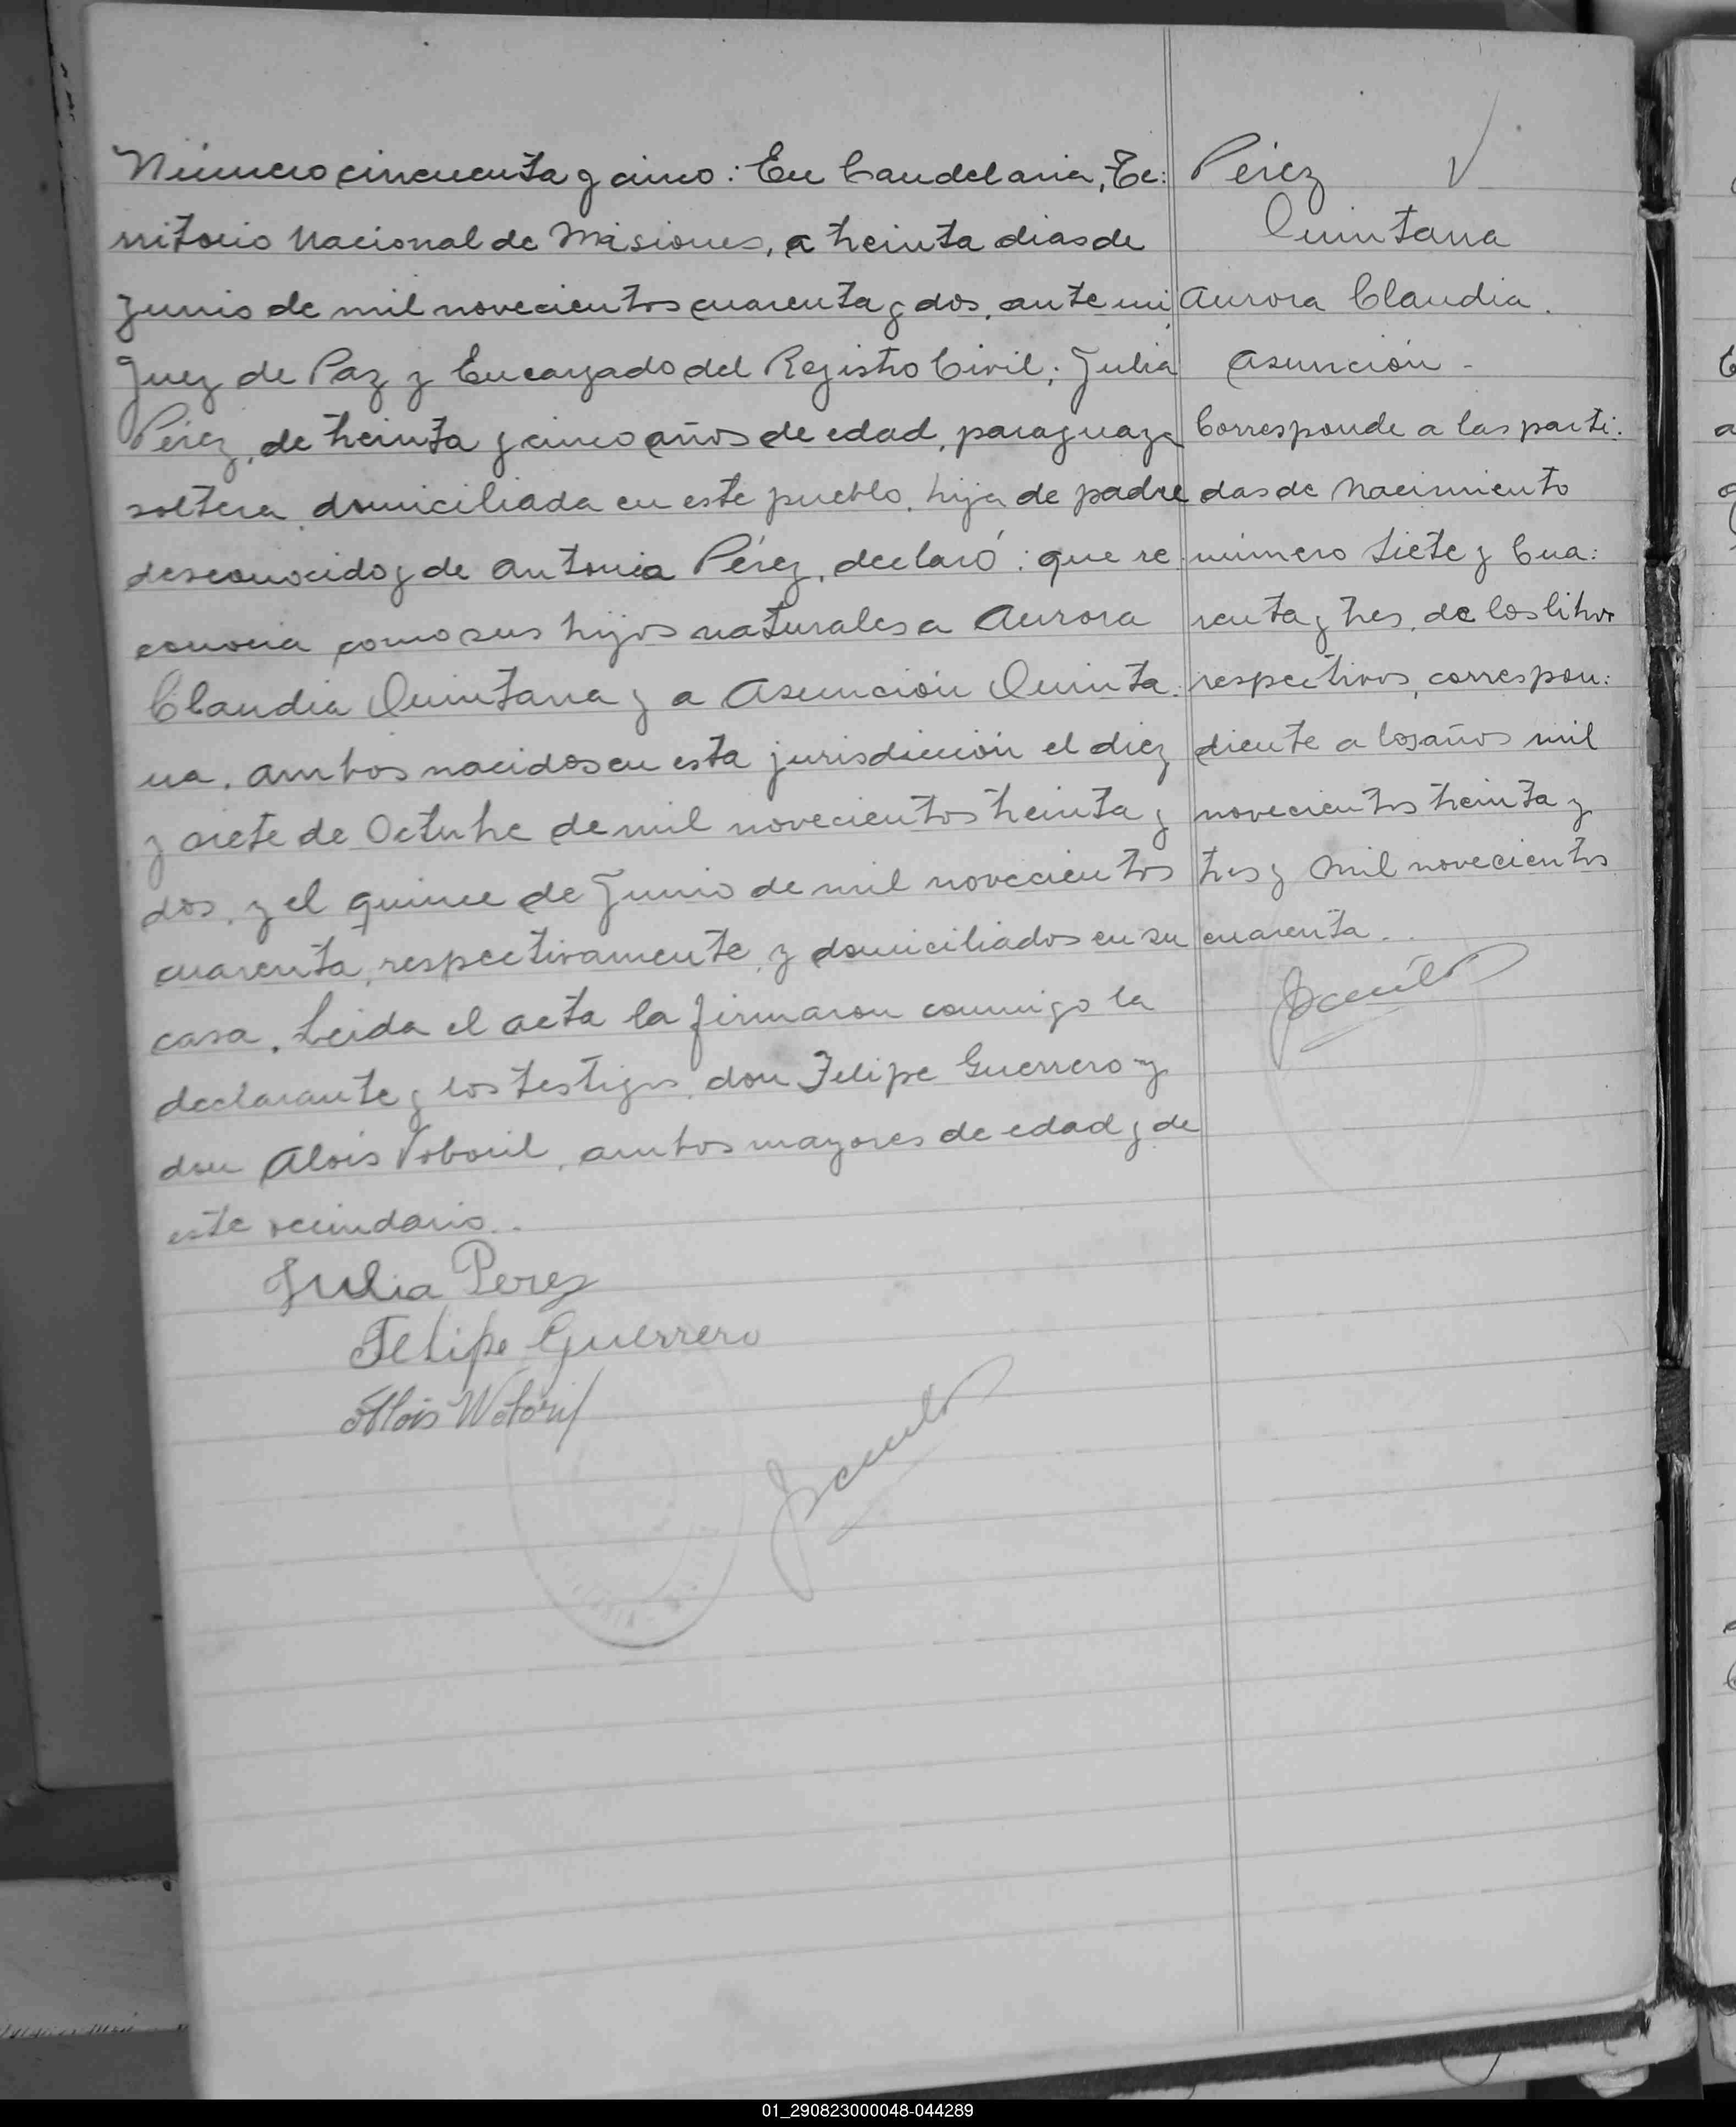 Número cincuenta y cinco: En Candelaria, Te:
rritorio Nacional de Misiones, a treinta dias de
Junio de mil novecientos cuarenta y dos, ante mi
Juez de Paz y Encargado del Registro Civil; Julia
Pérez, de treinta y cinco años de edad, paraguaya
soltera, domiciliada en este pueblo, hija de padre
desconocido y de Antonia Pérez, declaró: que re:
conocia como sus hijos naturales a Aurora
Claudia Quintana y a Asunción Quinta:
na, ambos nacidos en esta jurisdicción el diez
y siete de Octubre de mil novecientos treinta y
dos, y el quince de Junio de mil novecientos
cuarenta, respectivamente, y domiciliados en su
casa. Leida el acta la firmaron conmigo la
declarante y los testigos, don Felipe Guerrero y
don Alois Voboril, ambos mayores de edad y de
este vecindario.
Julia Perez
Felipe Guerrero
Alois
Pérez
Quintana
Aurora Claudia.
Asunción -
Corresponde a las parti:
das de Nacimiento
número Siete y Cua:
renta y tres, de los libros
respectivos, correspon:
diente a los años mil
novecientos treinta y
tres y mil novecientos
cuarenta.
01_290823000048-044289